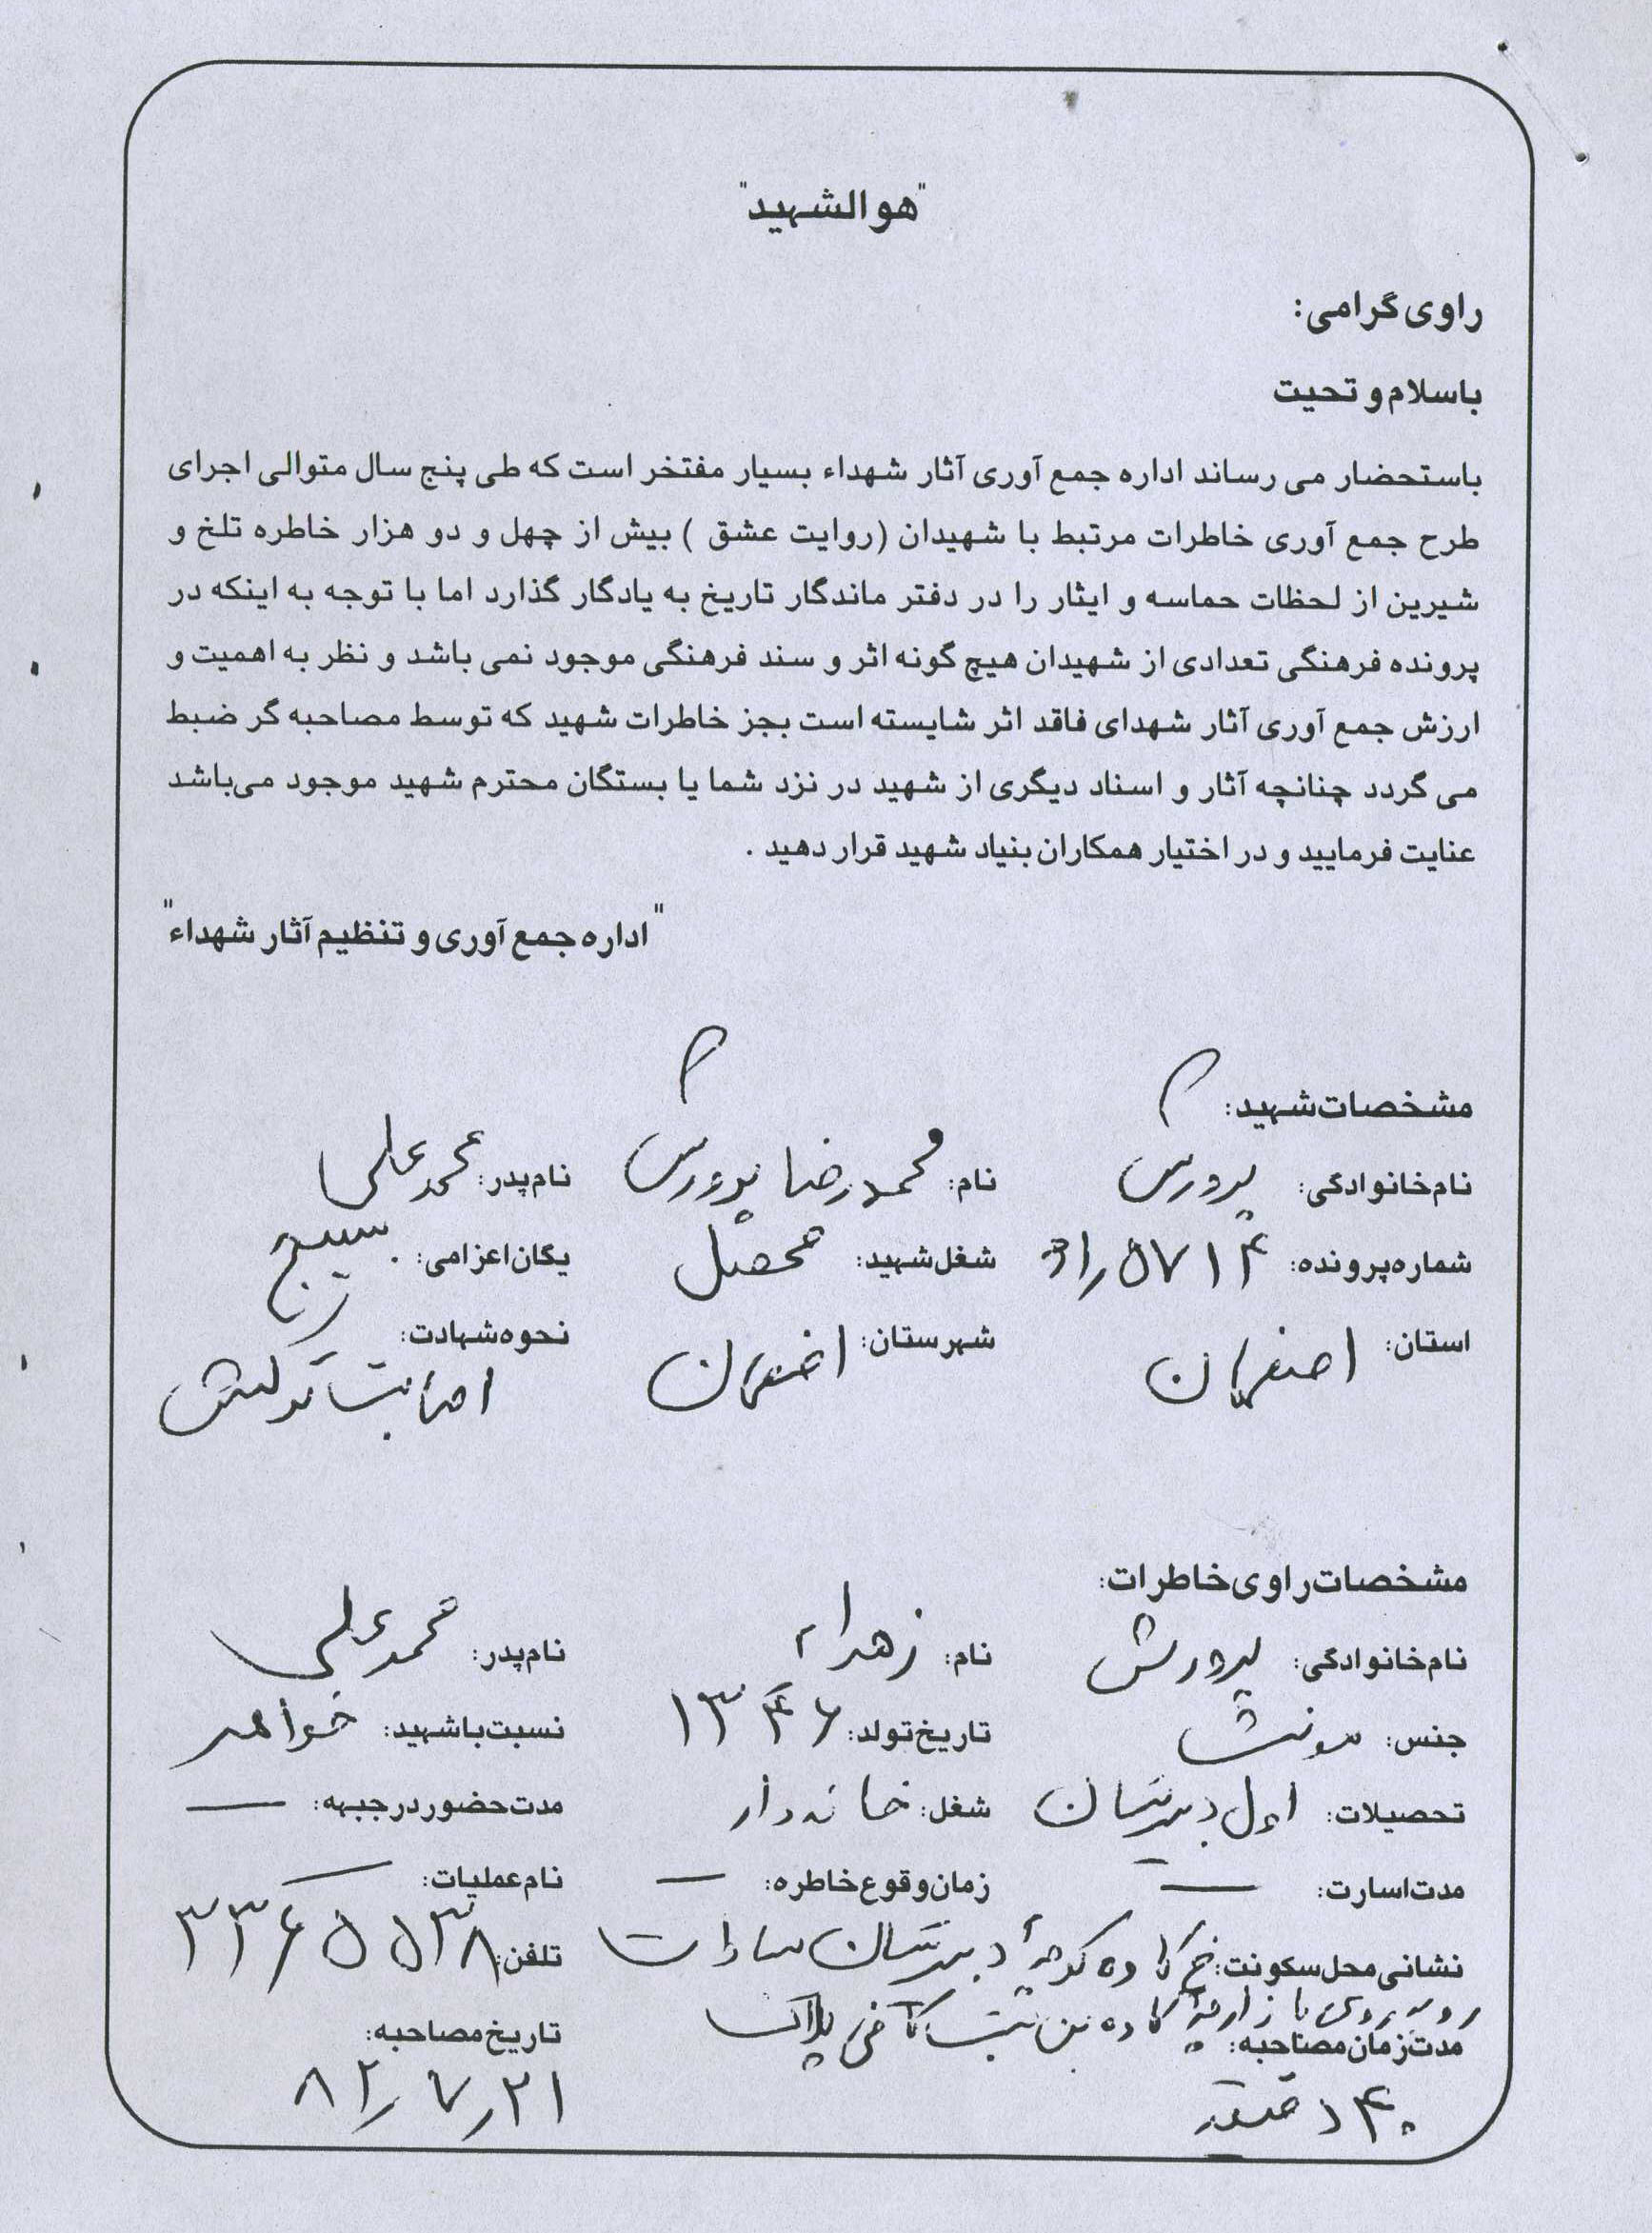 "هو الشهید"
راوی گرامی:
باسلام و تحیت
باستحضار می رساند اداره جمع آوری آثار شهداء بسیار مفتخر است که طی پنج سال متوالی اجرای
طرح جمع آوری خاطرات مرتبط با شهیدان (روایت عشق) بیش از چهل و دو هزار خاطره تلخ و
شیرین از لحظات حماسه و ایثار را در دفتر ماندگار تاریخ به یادگار گذارد اما با توجه به اینکه در
پرونده فرهنگی تعدادی از شهیدان هیچ گونه اثر و سند فرهنگی موجود نمی باشد و نظر به اهمیت و
ارزش جمع آوری آثار شهدای فاقد اثر شایسته است بجز خاطرات شهید که توسط مصاحبه گر ضبط
می گردد چنانچه آثار و اسناد دیگری از شهید در نزد شما یا بستگان محترم شهید موجود می‌باشد
عنایت فرمایید و در اختیار همکاران بنیاد شهید قرار دهید .
"اداره جمع آوری و تنظیم آثار شهداء"
مشخصات شهید:
نام خانوادگی: پرورش نام: محمدرضا پرورش نام پدر: محمدعلی
شماره پرونده: ۳۱٫۵۷۱۴ شغل شهید: محصل یگان اعزامی: بسیج
استان: اصفهان شهرستان: اصفهان نحوه شهادت:
اصابت ترکش
مشخصات راوی خاطرات:
نام خانوادگی: پرورش نام: زهراء نام پدر: محمدعلی
جنس: مونث تاریخ تولد: ۱۳۴۶ نسبت با شهید: خواهر
تحصیلات: اول دبیرستان شغل: خانه دار مدت حضور در جبهه: —
مدت اسارت: — زمان وقوع خاطره: — نام عملیات: —
نشانی محل سکونت: خ کاوه کوچه دبیرستان سادات تلفن: ۳۳۶۵۵۳۸
روبروی بازارچه کاوه بن بست پلاک
مدت زمان مصاحبه: تاریخ مصاحبه:
۴۰ دقیقه ۸۲٫۷٫۲۱